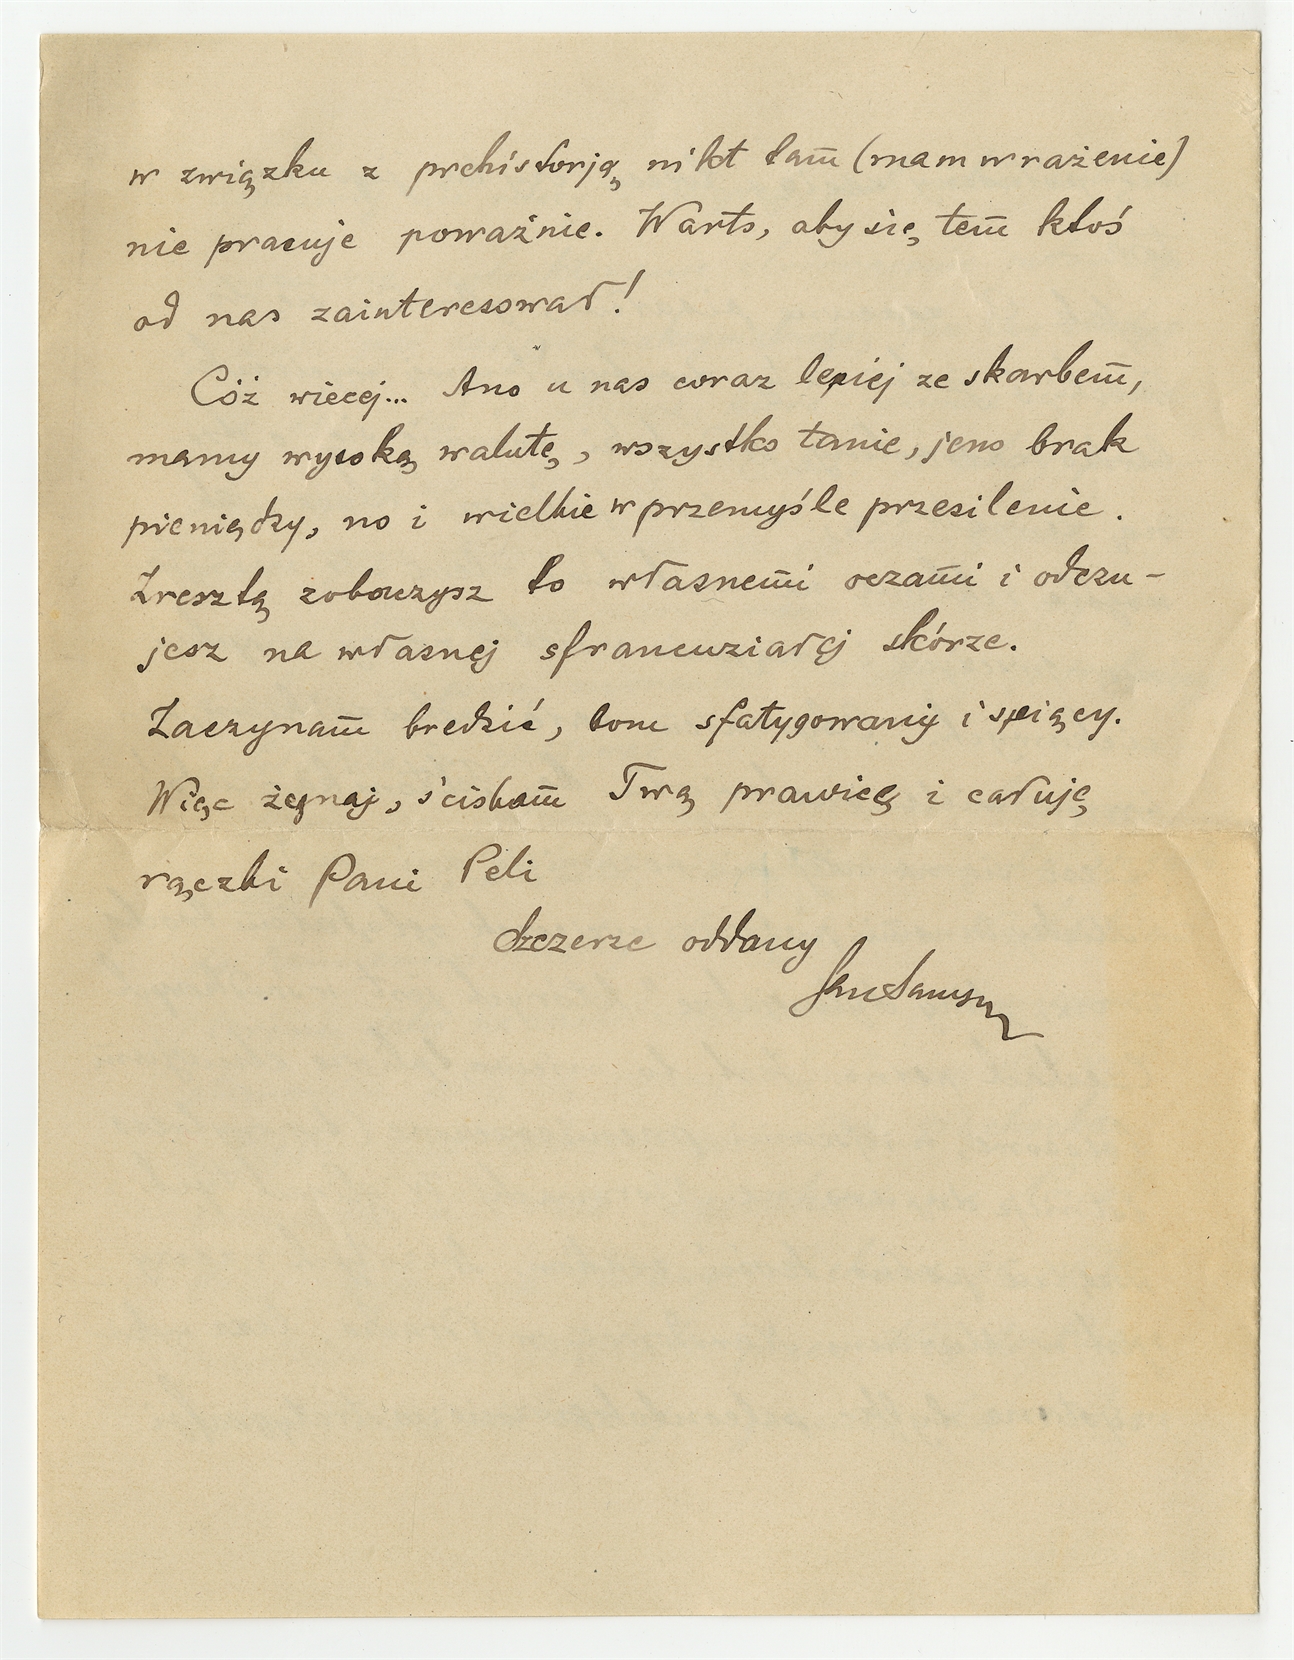 w związku z prehistorją nikt tam̄ (mam wrażenie)
nie pracuje poważnie. Warto, aby się tem̄ ktoś
od nas zainteresował!
Cóż wiecej... Ano u nas coraz lepiej ze skarbem̄,
mamy wysoką walutę, wszystko tanie, jeno brak
pieniędzy, no i wielkie w przemyśle przesilenie.
Zresztą zobaczysz to własnem̄i oczam̄i i odczu-
jesz na własnej sfrancuziałej skórze.
Zaczynam̄ bredzić, bom sfatygowany i śpiący.
Więc żegnaj, ściskam̄ Twą prawicę i całuję
rączki Pani Peli
Szczerze oddany